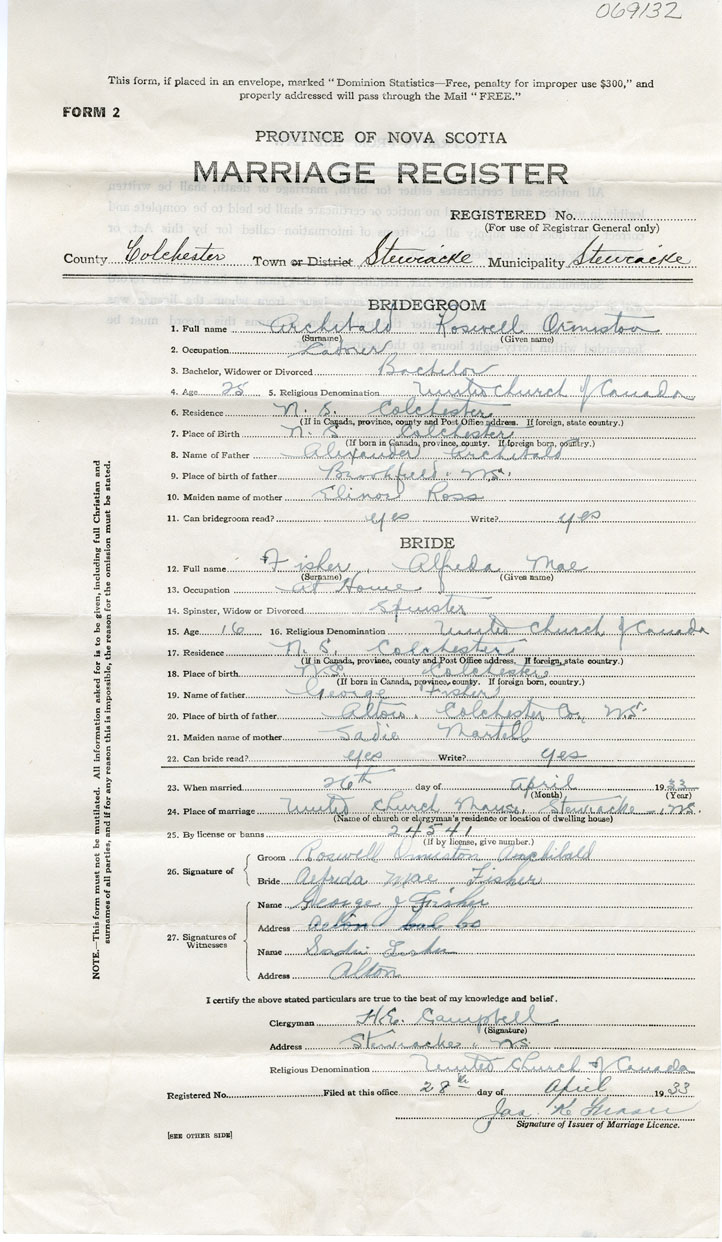 069132
This form, if placed in an envelope, marked "Dominion Statistics—Free, penalty for improper use $300," and
properly addressed will pass through the Mail "FREE."
FORM 2
PROVINCE OF NOVA SCOTIA
MARRIAGE REGISTER
REGISTERED No.
(For use of Registrar General only)
County Colchester Town or District Stewiacke Municipality Stewiacke
BRIDEGROOM
1. Full name Archibald Roswell Ormiston
(Surname) (Given name)
2. Occupation Laborer
3. Bachelor, Widower or Divorced Bachelor
4. Age 25 5. Religious Denomination United Church of Canada
6. Residence N. S. Colchester
(If in Canada, province, county and Post Office address. If foreign, state country.)
7. Place of Birth N. S. Colchester
(If born in Canada, province, county. If foreign born, country.)
8. Name of Father Alexander Archibald
9. Place of birth of father Brookfield. N.S.
10. Maiden name of mother Elinor Ross
11. Can bridegroom read? yes Write? yes
BRIDE
12. Full name Fisher, Alfreda Mae
(Surname) (Given name)
13. Occupation At Home
14. Spinster, Widow or Divorced Spinster
15. Age 16 16. Religious Denomination United Church of Canada
17. Residence N. S. Colchester
(If in Canada, province, county and Post Office address. If foreign, state country.)
18. Place of birth N.S. Colchester
(If born in Canada, province, county. If foreign born, country.)
19. Name of father George Fisher
20. Place of birth of father Alton, Colchester Co., N.S.
21. Maiden name of mother Sadie Martell
22. Can bride read? yes Write? yes
23. When married 26th day of April 1933
(Month) (Year)
24. Place of marriage United Church Manse, Stewiacke, N.S.
(Name of church or clergyman's residence or location of dwelling house)
25. By license or banns 24541
(If by license, give number.)
26. Signature of
Groom Roswell Ormiston Archibald
Bride Alfreda Mae Fisher
27. Signatures of Witnesses
Name George J Fisher
Address Alton Col Co
Name Sadie Fisher
Address Alton
I certify the above stated particulars are true to the best of my knowledge and belief.
Clergyman H.E. Campbell
(Signature)
Address Stewiacke, N.S.
Religious Denomination United Church of Canada
Registered No. Filed at this office 28th day of April 1933
Jas
Signature of Issuer of Marriage Licence.
[SEE OTHER SIDE]
NOTE.—This form must not be mutilated. All information asked for is to be given, including full Christian and
surnames of all parties, and if for any reason this is impossible, the reason for the omission must be stated.